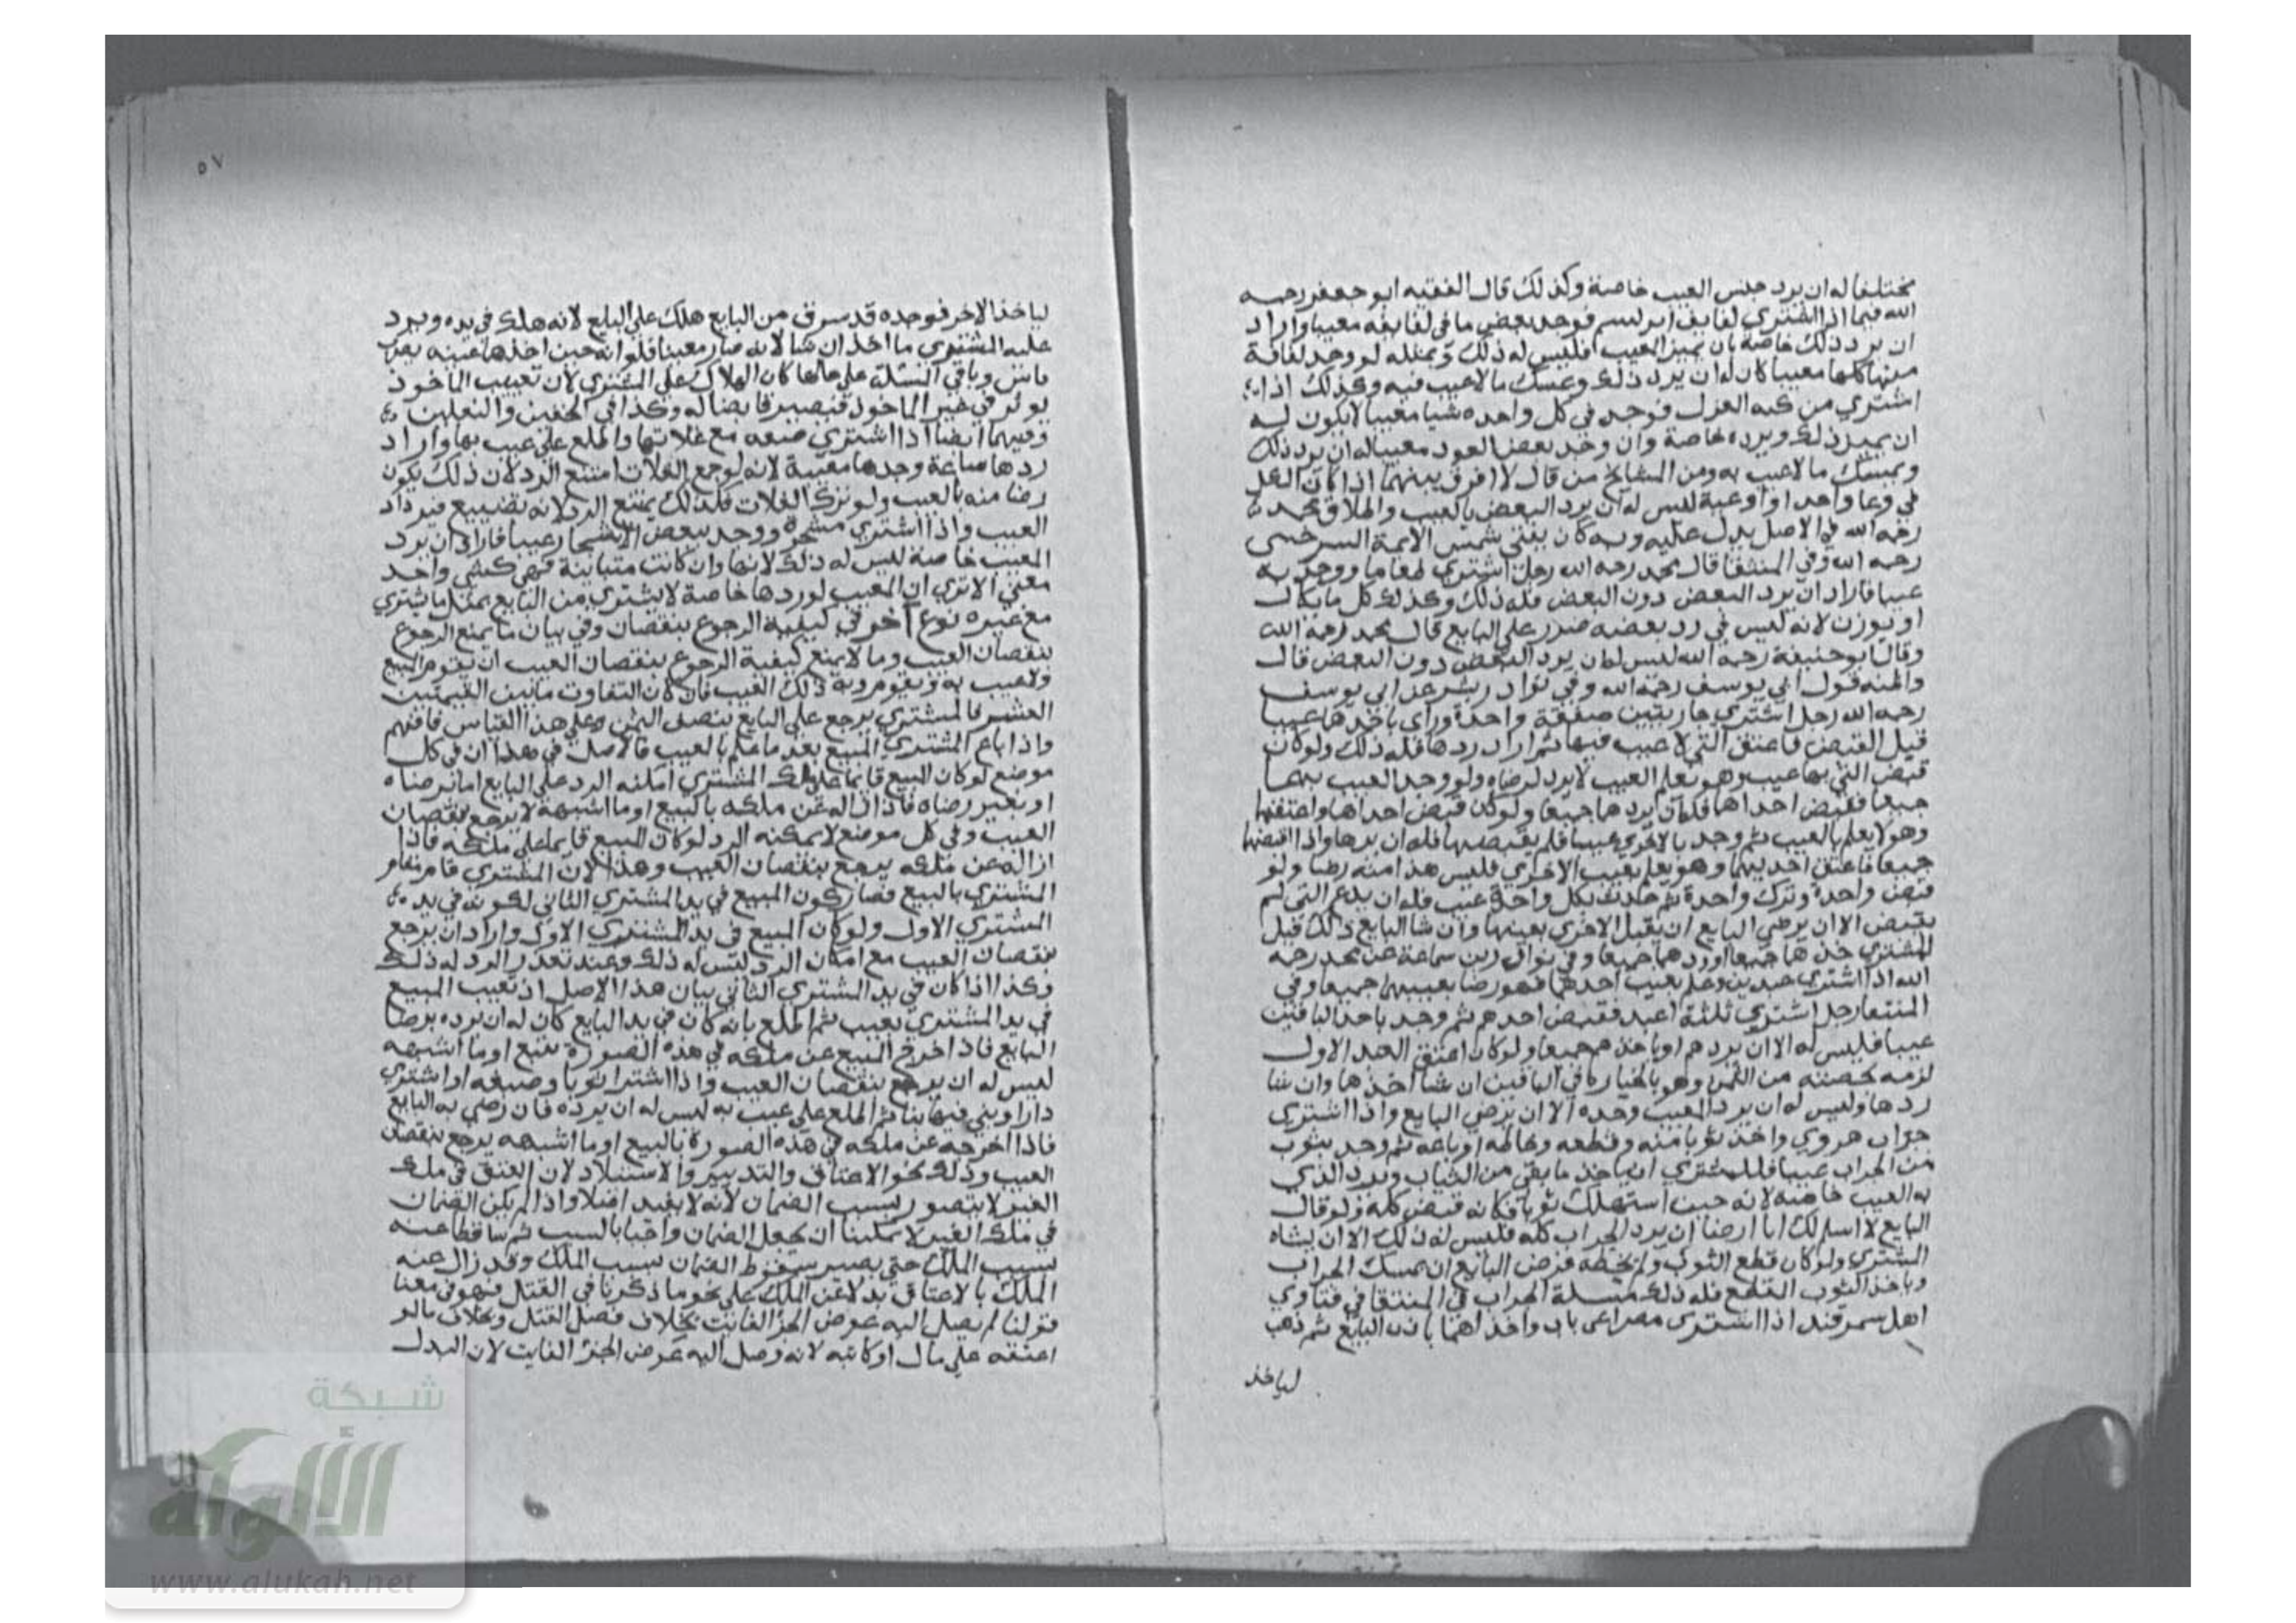 مختلفا له ان يرد جنس العيب خاصة وكذلك قال الفقيه ابو جعفر رحمه
الله فيما اذا اشتري لفايف ابريسم فوجد بعض ما في لفايفه معيبا واراد
ان يرد ذلك خاصة بان يميز المعيب فليس له ذلك وبمثله لو وجد لفافة
منها كلها معيبا كان له ان يرد ذلك ويمسك ما لا عيب فيه وكذلك اذا
اشتري من كبه الغزل فوجد في كل واحده شيا معيبا لا يكون له
ان يميز ذلك ويرده خاصة وان وجد بعض العود معيبا له ان يرد ذلك
ويمسك ما لا عيب به ومن المشايخ من قال لا فرق بينهما اذا كان الكل
في وعا واحد او اوعية ليس له ان يرد البعض بالعيب واطلاق محمد
رحمه الله في الاصل يدل عليه وبه كان يفتي شمس الايمة السرخسي
رحمه الله وفي المنتقا قال محمد رحمه الله رجل اشتري طعاما ووجد به
عيبا فاراد ان يرد البعض دون البعض فله ذلك وكذلك كل ما يكال
او يوزن لانه ليس في رد بعضه ضرر علي البايع قال محمد رحمة الله
وقال ابو حنيفة رحمه الله ليس له ان يرد البعض دون البعض قال
واظنه قول ابي يوسف رحمة الله وفي نوادر بشر عن ابي يوسف
رحمه الله رجل اشتري جاريتين صفقة واحدة وراي باحدها عيبا
قبل القبض فاعتق التي لا عيب فيها ثم اراد ردها فله ذلك ولو كان
قبض التي بها عيب وهو يعلم العيب لا يرد لرضاه ولو وجد العيب بهما
جميعا فقبض احداها فله ان يردها جميعا ولو كان قبض احداها واعتقها
وهو لا يعلم بالعيب ثم وجد بالاخري عيبا فلم يقبضها فله ان يردها واذا اقبضها
جميعا فاعتق احديهما وهو يعلم بعيب الاخري فليس هذا منه رضا ولو
قبض واحدة وترك واحدة ثم حدث بكل واحدة عيب فله ان يدع التي لم
يقبض الا ان يرضي البايع ان يقبل الاخري بعينها وان شا البايع ذلك قبل
للمشتري خذها جميعا او ردهما جميعا وفي نوادر بن سماعة عن محمد رحمه
الله اذا اشتري عبدين وعلم بعيب احدهما فهو رضا بعيبهما جميعا وفي
المنتقا رجل اشتري ثلثة اعبد فقبض احدهم ثم وجد باحد الباقيين
عيبا فليس له الا ان يردهم او ياخذهم جميعا ولو كان اعتق العبد الاول
لزمه بحصته من الثمن وهو بالخياره في الباقين ان شا اخذها وان شا
ردها وليس له ان يرد المعيب وحده الا ان يرضي البايع واذا اشتري
جراب هروي واخذ ثوبا منه وقطعه وخاطه او باعه ثم وجد بثوب
من الجراب عيبا فللمشتري ان ياخذ ما بقي من الثياب ويرد الذي
به العيب خاصة لانه حيث استهلك ثوبا فكانه قبض كله ولو قال
البايع لا اسلم لك انا ارضا ان يرد الجراب كله فليس له ذلك الا ان يشاه
المشتري ولو كان قطع الثوب ولم يخطه فرض البايع ان يمسك الجراب
وياخذ الثوب القطع فله ذلك مسلة الجراب في المنتقا في فتاوي
اهل سمرقند اذا اشتري مصراعي باب واخذ احدهما باذن البايع ثم ذهب
لياخذ
٥٧
لياخذ الاخر فوجده قد سرق من البايع هلك علي البايع لانه هلك في يده ويرد
عليه المشتري ما اخذ ان شا لانه صار معيبا فلو انه حين اخذها عيبه
وباقي المسئلة علي حالها كان الهلاك علي المشتري لان تعييب الماخوذ
يوثر في غير الماخوذ فيصير قابضا له وكذا في الخفين والنعلين
وفيهما ايضا اذا اشتري ضيعه مع غلاتها واطلع علي عيب بها واراد
ردها ساعة وجدها معيبة لانه لو جمع الغلات امتنع الرد لان ذلك يكون
رضا منه بالعيب ولو نزك الغلات فكذلك يمتنع الرد لانه تضييع فيرداد
العيب واذا اشتري مشجرة ووجد ببعض الاشجار عيبا فاراد ان يرد
المعيب خاصة ليس له ذلك لانها وان كانت متباينة فهي كشي واحد
معني الا تري ان المعيب لو ردها خاصة لا يشتري من البايع بمثل ما يشتري
مع غيره نوع آخر في كيفية الرجوع بنقصان وفي بيان ما يمنع الرجوع
بنقصان العيب وما لا يمنع كيفية الرجوع بنقصان العيب ان يقوم المبيع
ولا عيب به ويقوم وبه ذلك العيب فان كان التفاوت ما بين القيمتين
العشر فالمشتري يرجع علي البايع بنصف الثمن وعلي هذا القياس فافهم
واذا باع المشتري المبيع بعد ما علم بالعيب فالاصل في هذا ان في كل
موضع لو كان المبيع قايما علي ملك المشتري امكنه الرد علي البايع اما برضاه
او بغير رضاه فاذا ازاله عن ملكه بالبيع او ما اشبهه لا يرجع بنقصان
العيب وفي كل موضع لا يمكنه الرد لو كان المبيع قايما علي ملكه فاذا
ازاله عن ملكه يرجع بنقصان العيب وهذا لان المشتري قام مقام
المشتري بالبيع فصار كون المبيع في يد المشتري الثاني لكونه في يده
المشتري الاول ولو كان المبيع في يد المشتري الاول واراد ان يرجع
بنقصان العيب مع امكان الرد ليس له ذلك وعند تعذر الرد له ذلك
وكذا اذا كان في يد المشتري الثاني بيان هذا الاصل اذ تعيب المبيع
في يد المشتري بعيب ثم اطلع بانه كان في يد البايع كان له ان يرده برضا
البايع فاذا اخرج المبيع عن ملكه في هذه الصورة ببيع او ما اشبهه
ليس له ان يرجع بنقصان العيب واذا اشترا ثوبا وصبغه او اشتري
دارا وبني فيها بنا ثم اطلع علي عيب به ليس له ان يرده فان رضي به البايع
فاذا اخرجه عن ملكه في هذه الصورة بالبيع او ما اشبهه يرجع بنقصان
العيب وذلك نحو الاعتاق والتدبير والاستيلاد لان العتق في ملك
الغير لا يتصور بسبب الضمان لانه لا يفيد اصلا واذا لم يكن الضمان
في ملك الغير لا يمكننا ان نجعل الضمان واجبا بالسبب ثم ساقطا عنه
بسبب الملك حتي يصير سقوط الضمان بسبب الملك وقد زال عنه
الملك بالاعتاق بدلا عن الملك علي نحو ما ذكرنا في القتل فهو في معنا
قولنا لم يصل اليه عوض الجز الفايت بخلاف فصل القتل وبخلاف ما لو
اعتقه علي مال او كاتبه لانه وصل اليه عوض الجز الفايت لان البدل
شبكة
الألوكة
www.alukah.net